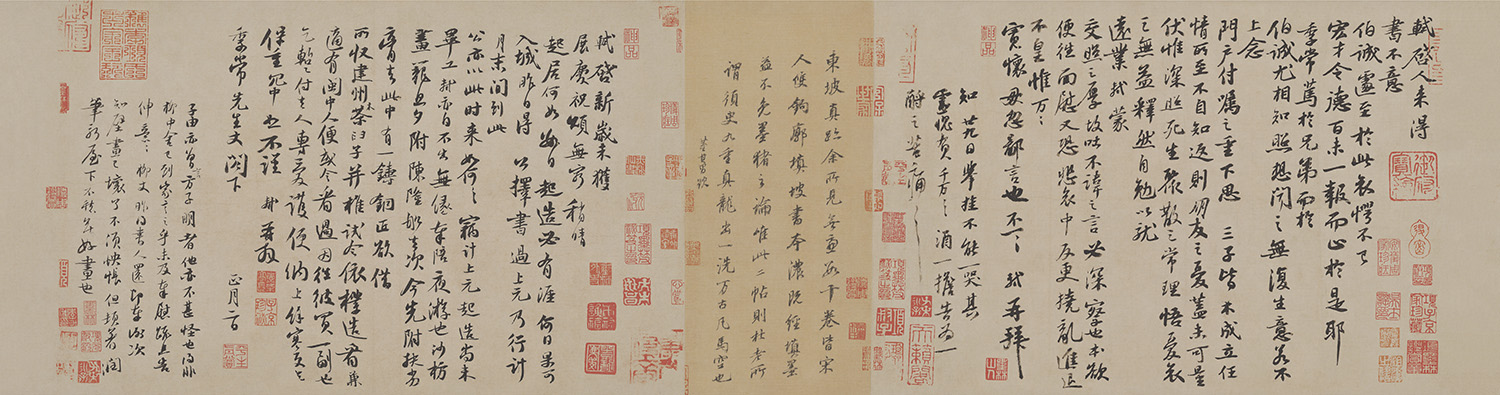 軾啓人來得
書不意
伯誠遽至於此哀愕不已
宏才令德百未一報而止於是耶
季常篤於兄弟而於
伯誠尤相知照想聞之無復生意若不
上念
門戶付囑之重下思三子皆未成立任
情所至不自知返則朋友之憂蓋未可量
伏惟深照死生聚散之常理悟憂哀
之無益釋然自勉以就
遠業軾蒙
交照之厚故吐不諱之言必深察也本欲
便往面慰又恐悲哀中反更撓亂進退
不皇惟萬萬
寬懷毋忽鄙言也不一一軾再拜
知廿九日舉掛不能一哭其
靈愧負千万千万酒一擔告為一
酹之苦痛苦痛
東坡真跡余所見無慮數十卷皆宋
人雙鉤廓填坡書本濃既經填墨
益不免墨豬之論唯此二帖則杜老所
謂須臾九重真龍出一洗万古凡馬空也
董其昌跋
軾啓新歲未獲
展慶祝頌無窮稍晴
起居何如數日起造必有涯何日果可
入城昨日得公擇書過上元乃行計
月末間到此
公亦以此時來如何如何竊計上元起造尚未
畢工軾亦自不出無緣奉陪夜遊也沙枋
畫籠旦夕附陳隆船去次今先附扶劣
膏去此中有一鑄銅匠欲借
所收建州木茶臼子并椎試令依樣造看兼
適有閩中人便或令看過因往彼買一副也
乞暫付去人專愛護便納上餘寒更乞
保重冗中恕不謹軾再拜
季常先生丈閣下
正月二日
子由亦曾言方子明者他亦不甚怪也得非
柳中舍已到家言之乎未及奉慰疏且告
伸意伸意柳丈昨得書人還即奉謝次
知壁畫已壞了不須怏悵但頓著潤
筆新屋下不愁無好畫也